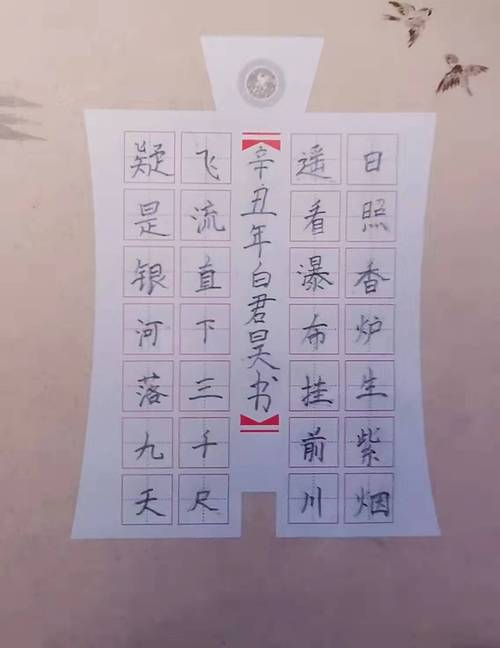 日照香炉生紫烟
遥看瀑布挂前川
辛丑年白君昊书
飞流直下三千尺
疑是银河落九天